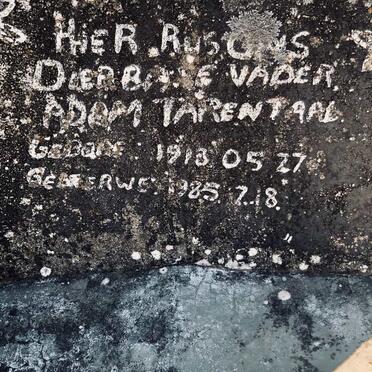 HIER RUS ONS
DIERBARE VADER
ADAM TARENTAAL
GEBORE: 1918 05 27
GESTERWE: 1985.7.18.